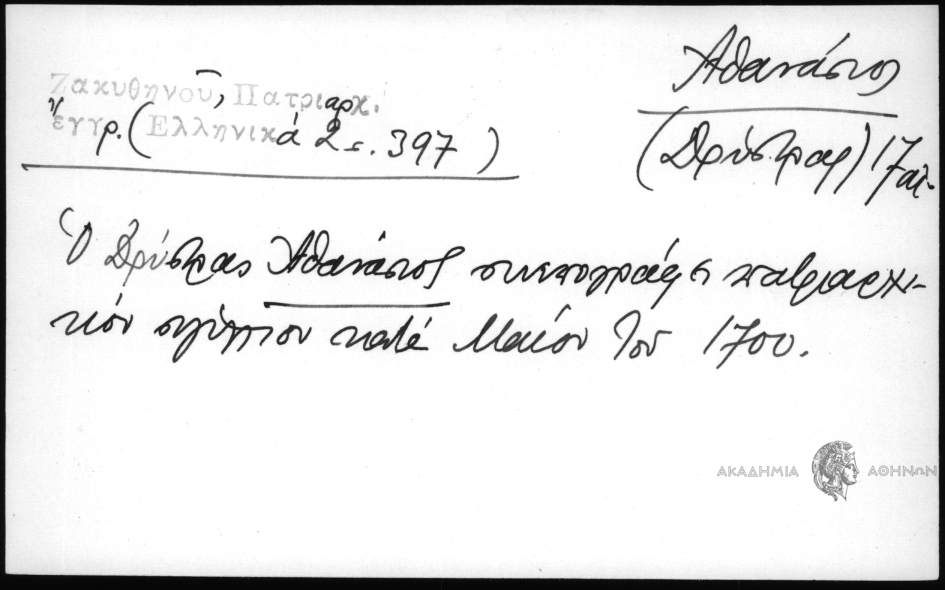 Ζακυθηνοῦ, Πατριαρχ.
ἔγγρ. (Ἑλληνικά 2 σ. 397)
Ἀθανάσιος
(Δρύστρας) 17 αἰ.
Ὁ Δρύστρας Ἀθανάσιος συνυπογράφει πατριαρχι-
κὸν σιγίλλιον κατὰ Μάϊον τοῦ 1700.
ΑΚΑΔΗΜΙΑ ΑΘΗΝΩΝ